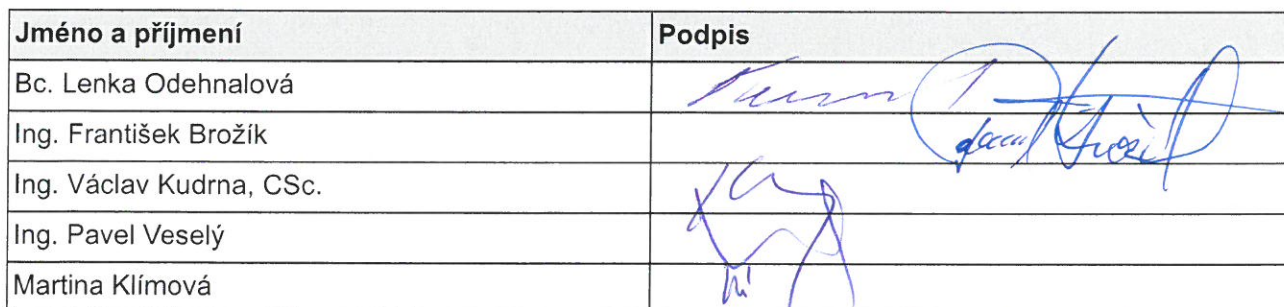 Jméno a příjmení Podpis
Bc. Lenka Odehnalová
Ing. František Brožík
Ing. Václav Kudrna, CSc.
Ing. Pavel Veselý
Martina Klímová